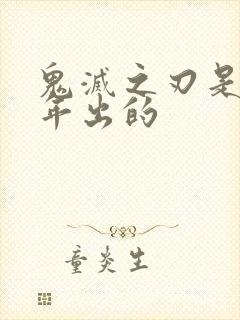 鬼滅之刃是
年出的
童炎生